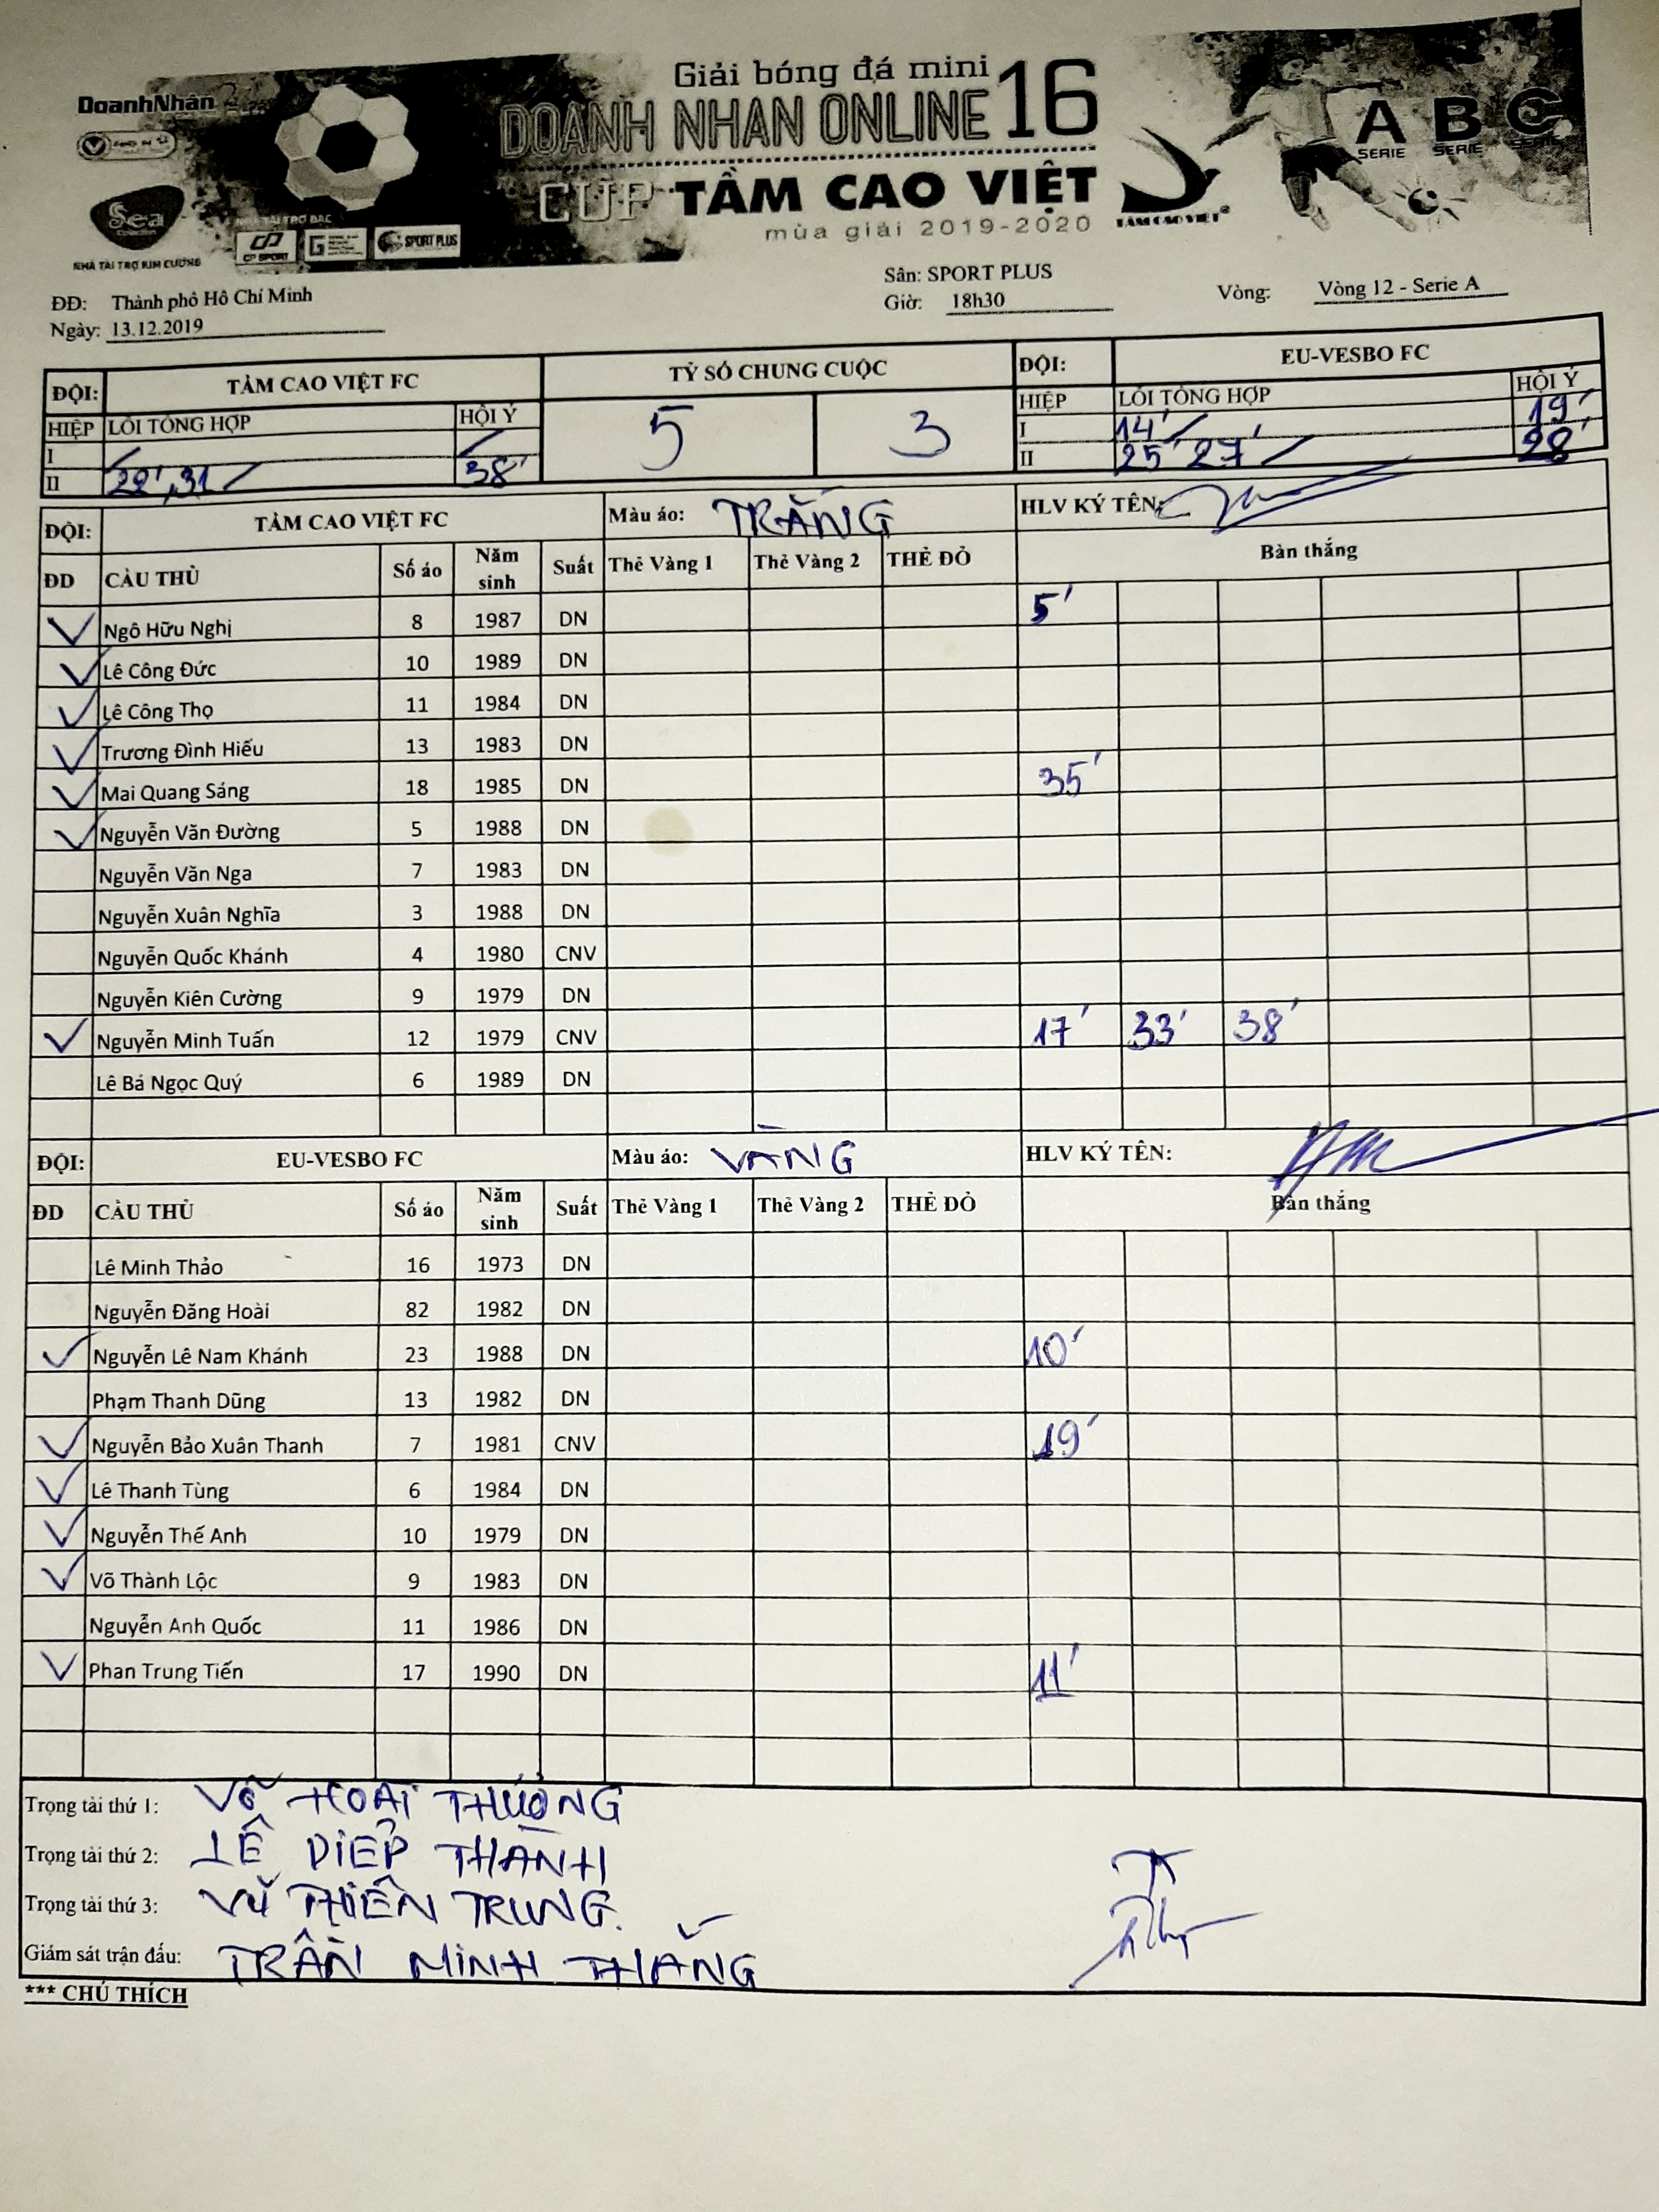 Giải bóng đá mini
DoanhNhân
DOANH NHAN ONLINE 16
A B C
SERIE SERIE SERIE
CUP TẦM CAO VIỆT
mùa giải 2019-2020
TẦM CAO VIỆT
Sea
NHÀ TÀI TRỢ BẠC
CP SPORT
SPORT PLUS
NHÀ TÀI TRỢ KIM CƯƠNG
ĐĐ: Thành phố Hồ Chí Minh Sân: SPORT PLUS
Ngày: 13.12.2019 Giờ: 18h30 Vòng: Vòng 12 - Serie A
ĐỘI: TẦM CAO VIỆT FC TỶ SỐ CHUNG CUỘC ĐỘI: EU-VESBO FC
HIỆP LỖI TỔNG HỢP HỘI Ý 5 3 HIỆP LỖI TỔNG HỢP HỘI Ý
I I 14' 19'
II 22', 31 38' II 25' 27' 28'
ĐỘI: TẦM CAO VIỆT FC Màu áo: TRẮNG HLV KÝ TÊN:
ĐD CẦU THỦ Số áo Năm sinh Suất Thẻ Vàng 1 Thẻ Vàng 2 THẺ ĐỎ Bàn thắng
Ngô Hữu Nghị 8 1987 DN 5'
Lê Công Đức 10 1989 DN
Lê Công Thọ 11 1984 DN
Trương Đình Hiếu 13 1983 DN
Mai Quang Sáng 18 1985 DN 35'
Nguyễn Văn Đường 5 1988 DN
Nguyễn Văn Nga 7 1983 DN
Nguyễn Xuân Nghĩa 3 1988 DN
Nguyễn Quốc Khánh 4 1980 CNV
Nguyễn Kiên Cường 9 1979 DN
Nguyễn Minh Tuấn 12 1979 CNV 17' 33' 38'
Lê Bá Ngọc Quý 6 1989 DN
ĐỘI: EU-VESBO FC Màu áo: VÀNG HLV KÝ TÊN:
ĐD CẦU THỦ Số áo Năm sinh Suất Thẻ Vàng 1 Thẻ Vàng 2 THẺ ĐỎ Bàn thắng
Lê Minh Thảo 16 1973 DN
Nguyễn Đăng Hoài 82 1982 DN
Nguyễn Lê Nam Khánh 23 1988 DN 10'
Phạm Thanh Dũng 13 1982 DN
Nguyễn Bảo Xuân Thanh 7 1981 CNV 19'
Lê Thanh Tùng 6 1984 DN
Nguyễn Thế Anh 10 1979 DN
Võ Thành Lộc 9 1983 DN
Nguyễn Anh Quốc 11 1986 DN
Phan Trung Tiến 17 1990 DN 11'
Trọng tài thứ 1: VÕ HOÀI THƯỞNG
Trọng tài thứ 2: LÊ DIỆP THÀNH
Trọng tài thứ 3: VŨ THIÊN TRUNG.
Giám sát trận đấu: TRẦN MINH THẮNG
*** CHÚ THÍCH